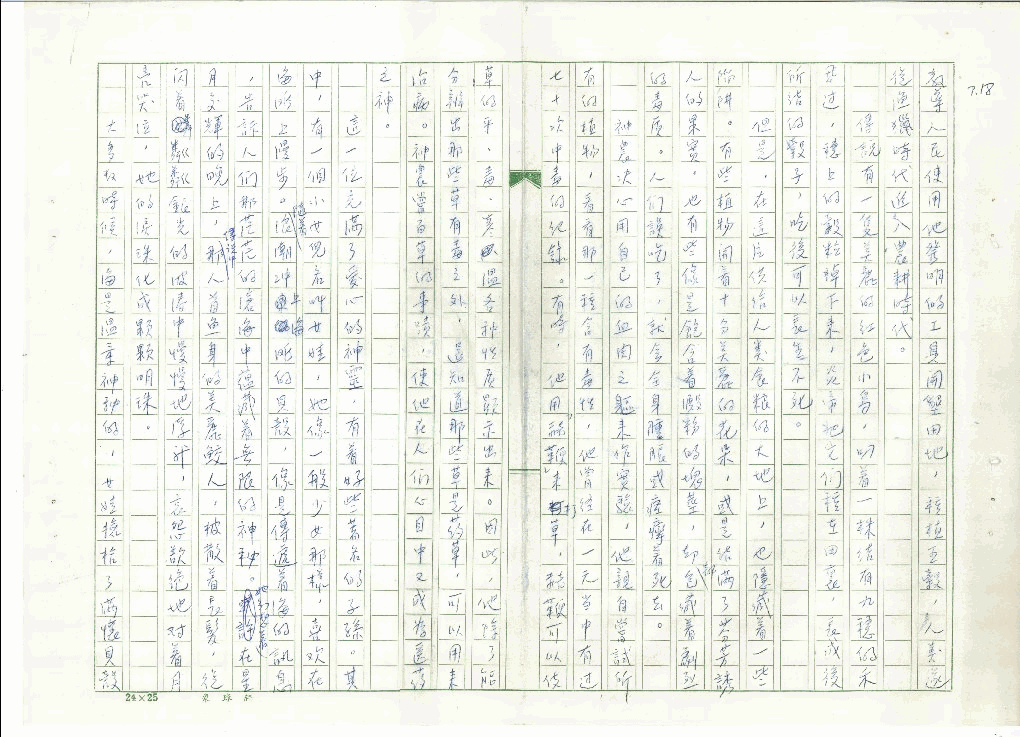 7.18
教導人民使用他發明的工具開墾田地，種植五穀，人類遂
從漁獵時代進入農耕時代。
傳說有一隻美麗的紅色小鳥，叼着一株結有九穗的禾
飛過，穗上的穀粒掉下來，炎帝把它們種在田裏，長成後
所結的穀子，吃後可以長生不死。
但是，在這片供給人類食糧的大地上，也隱藏着一些
陷阱。有些植物開着十分美麗的花朵，或是結滿了芬芳誘
人的果實，也有些像是飽含着澱粉的塊莖，卻包藏着劇烈
的毒質。人們誤吃了，就會全身腫脹或痙攣着死去。
神農決心用自己的血肉之軀來作實驗，他親自嘗試所
有的植物，看看那一種含有毒性，他曾經在一天當中有過
七十次中毒的紀錄。有時，他用「赭鞭」來打草，赭鞭可以使
草的平、毒、寒、溫各種性質顯示出來。因此，他除了能
分辨出那些草有毒之外，還知道那些草是藥草，可以用來
治病。神農嘗百草的事蹟，使他在人們心目中又成為醫藥
之神。
這一位充滿了愛心的神靈，有着好些著名的子孫。其
中，有一個小女兒名叫女娃，她像一般少女那樣，喜歡在
海所上漫步。隨着海潮沖上海所的貝殼，像是傳遞着海的訊息
，告訴人們那茫茫的滄海中蘊藏着無限的神秘。在星
月交輝的晚上，傳說中人首魚身的美麗鮫人，披散着長髮，從
閃着粼粼銀光的波濤中慢慢地浮升，哀怨欲絕地對着月
亮哭泣，她的淚珠化成顆顆明珠。
大多數時候，海是溫柔神秘的，女娃撿拾了滿懷貝殼
24×25